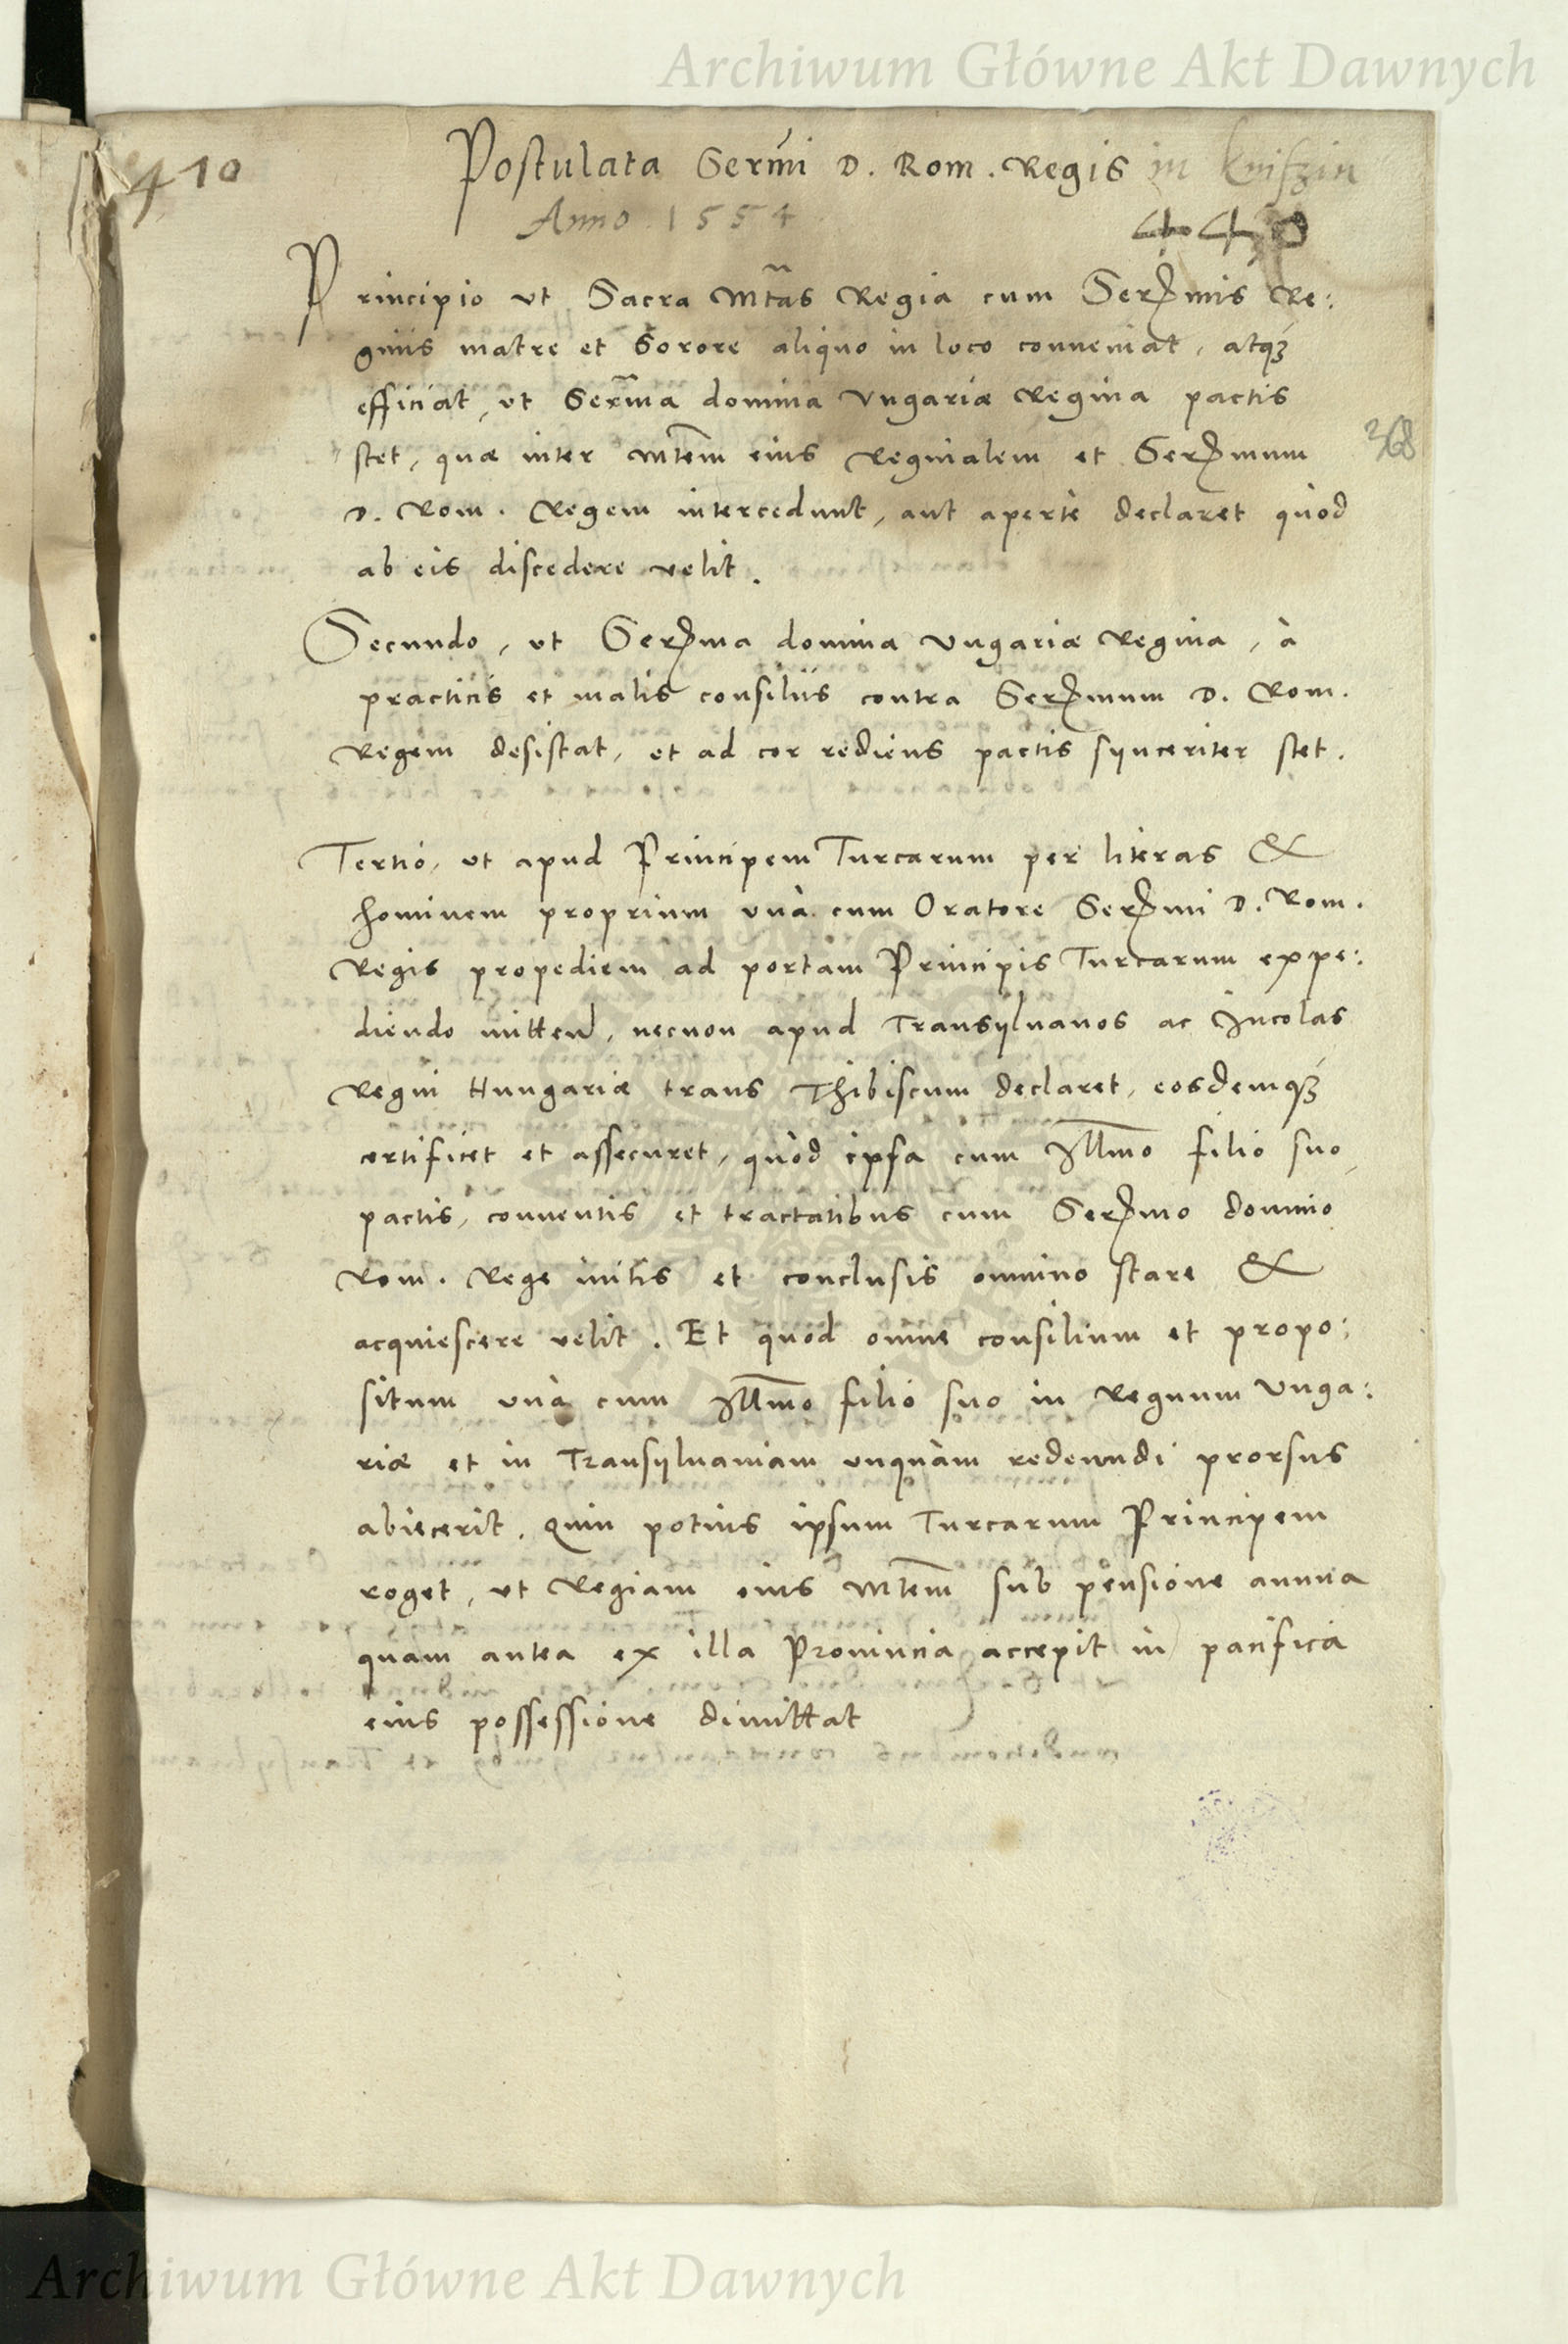 Archiwum Główne Akt Dawnych
410
Postulata Serm̃i D. Rom. Regis in Knifzin
Anno. 1554
440
Principio vt Sacra Mt̃as Regia cum Serᵐmis Re:
ginis matre et Sorore aliquo in loco conueniat, atqꝫ
efficiat, vt Serm̃a domina Vngariæ Regina pactis
stet, quæ inter Mt̃em eius Reginalem et Serᵐmum
368
D. Rom. Regem intercedunt, aut apertè declaret quòd
ab eis discedere velit.
Secundo, vt Serᵐma domina Vngariæ Regina, à
practicis et malis consiliis contra Serᵐmum D. Rom.
Regem desistat, et ad cor rediens pactis synceriter stet.
Tertiò, vt apud Principem Turcarum per literas &
hominem proprium vnà cum Oratore Serᵐmi D. Rom.
Regis propediem ad portam Principis Turcarum expe:
diendo mittend, necnon apud Transyluanos ac Incolas
Regni Hungariæ trans Thibiscum declaret, eosdemqꝫ
certificet et assecuret, quòd ipsa cum Illm̃o filio suo
pactis, conuentis et tractatibus cum Serᵐmo domino
Rom. Rege initis et conclusis omnino stare &
acquiescere velit. Et quòd omne consilium et propo:
situm vnà cum Illm̃o filio suo in Regnum Vnga:
riæ et in Transyluaniam vnquàm redeundi prorsus
abiecerit. Quin potius ipsum Turcarum Principem
roget, vt Regiam eius Mt̃em sub pensione annua
quam antea ex illa Prouincia accepit in pacifica
eius possessione dimittat
Archiwum Główne Akt Dawnych